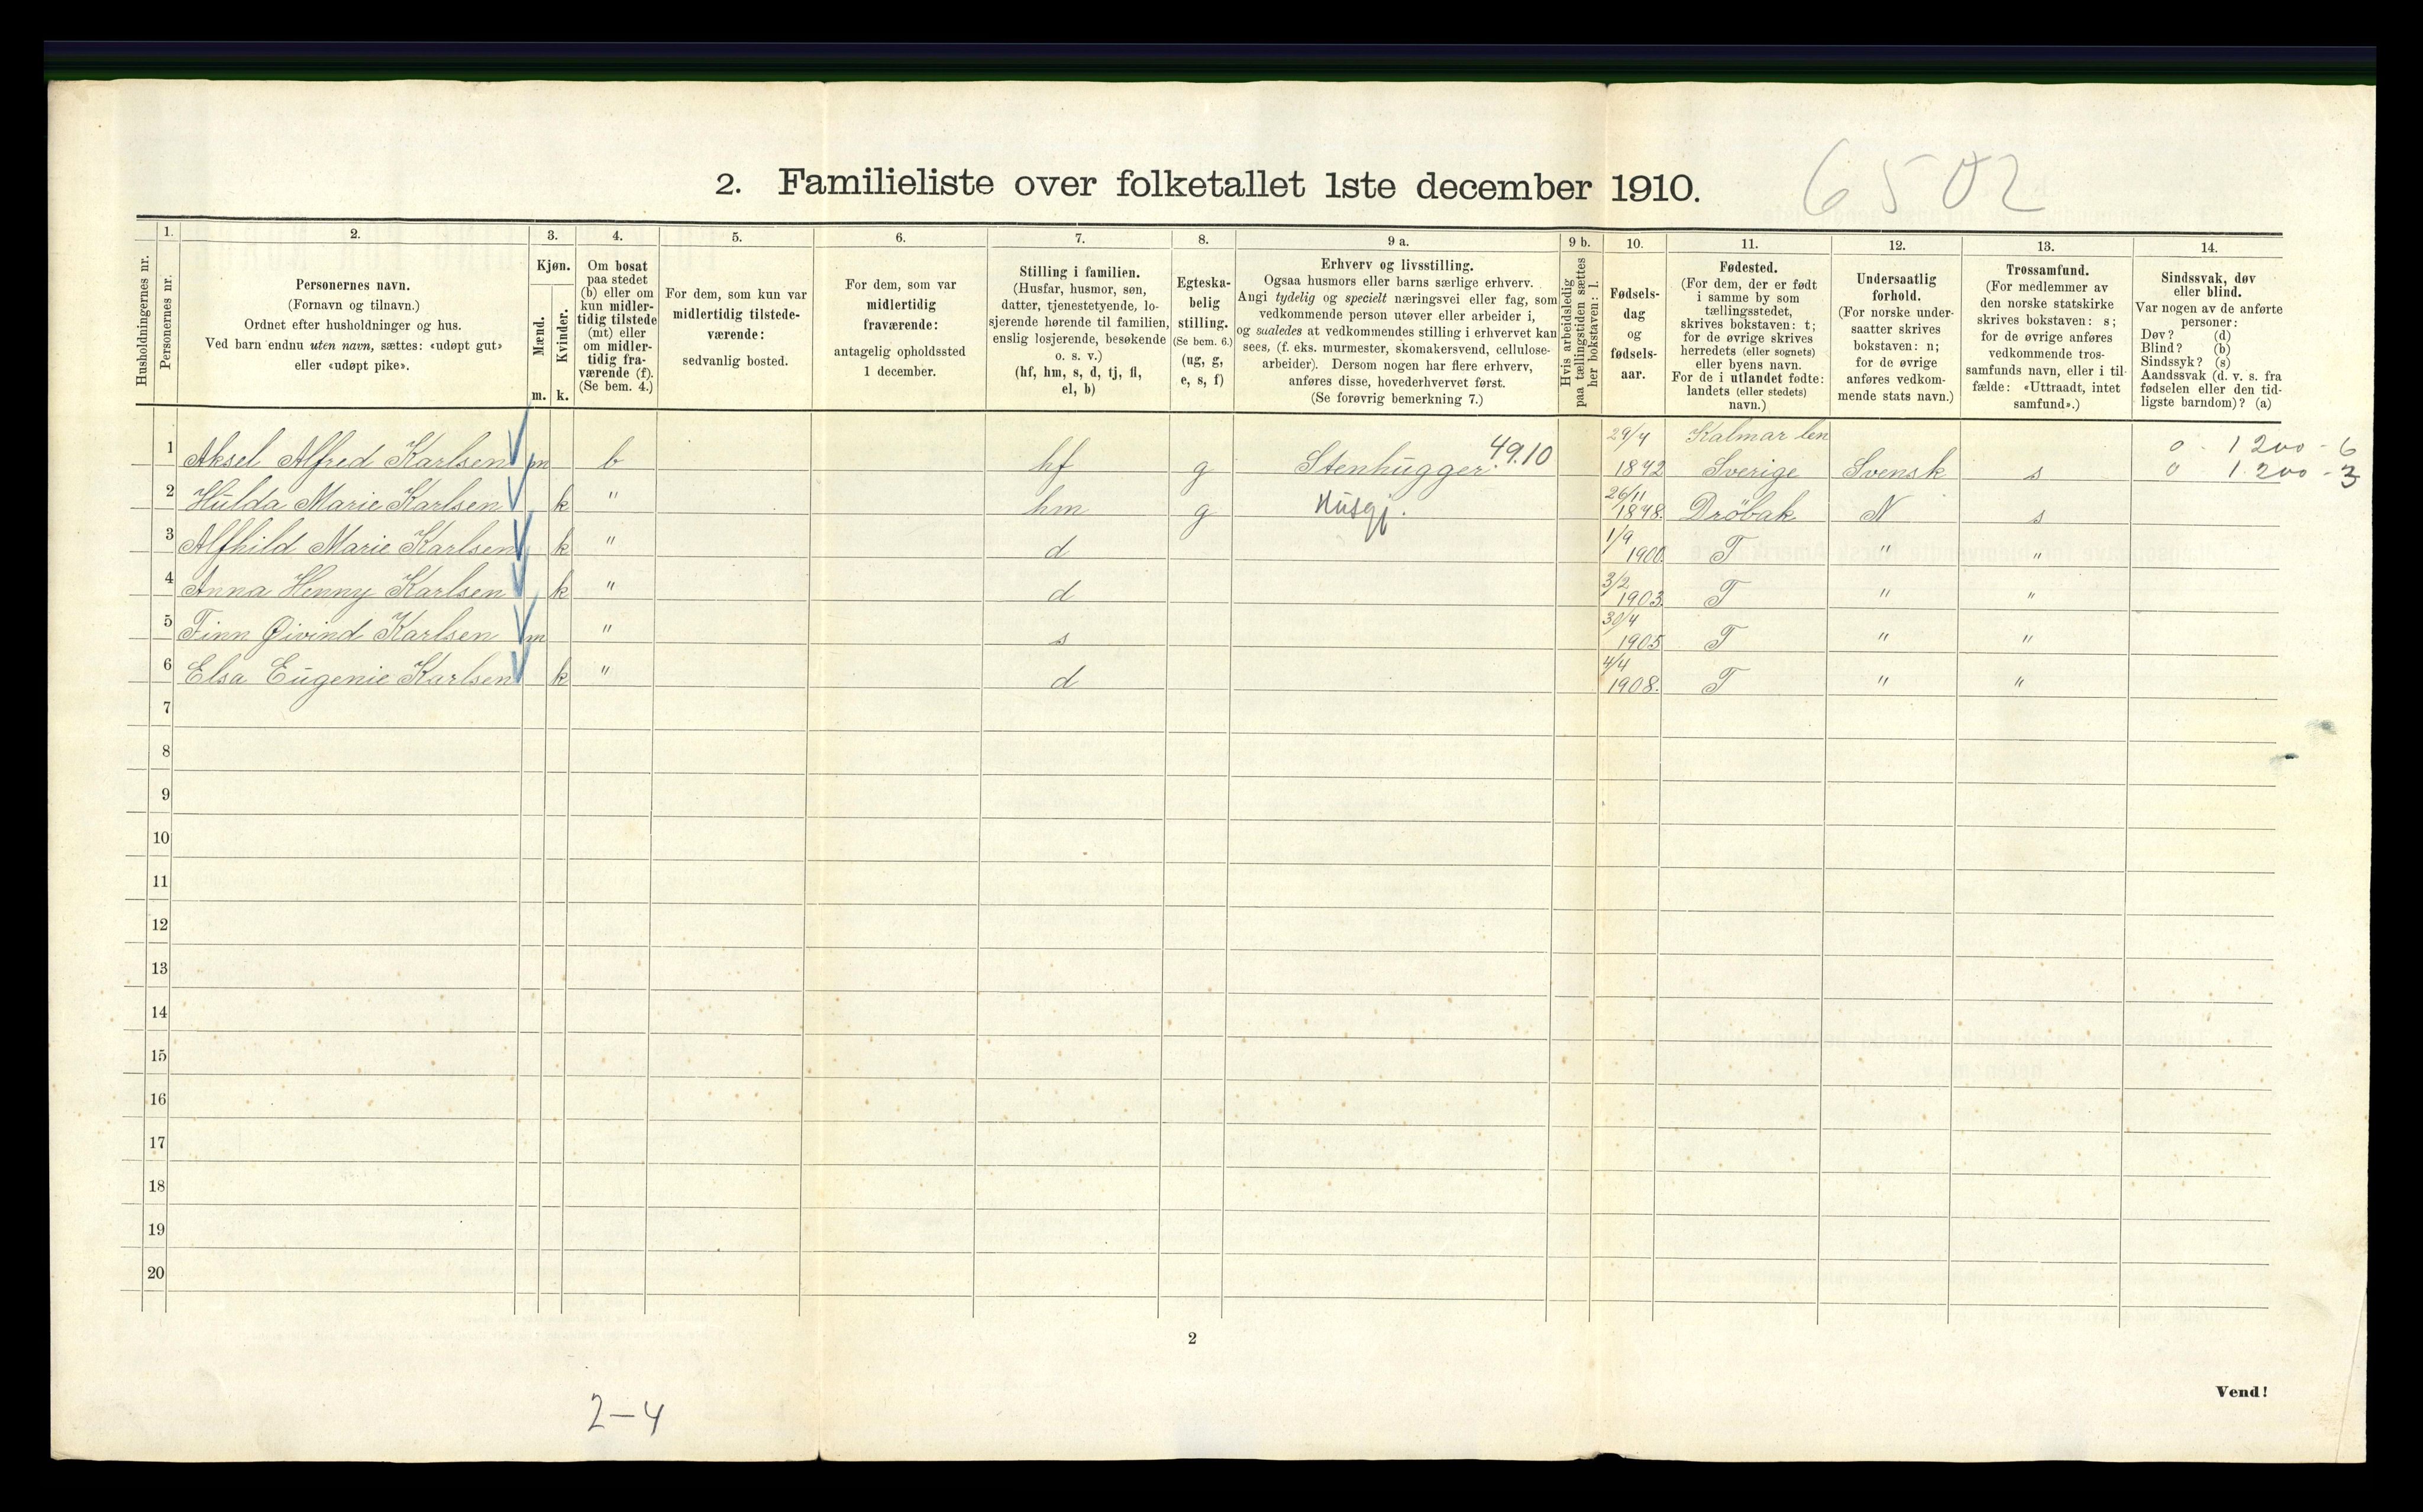 6502
2. Familieliste over folketallet 1ste december 1910.
Husholdningernes nr.
1.
Personernes nr.
2.
Personernes navn.
(Fornavn og tilnavn.)
Ordnet efter husholdninger og hus.
Ved barn endnu uten navn, sættes: «udøpt gut»
eller «udøpt pike».
3.
Kjøn.
Mænd.
Kvinder.
m. k.
4.
Om bosat
paa stedet
(b) eller om
kun midler-
tidig tilstede
(mt) eller
om midler-
tidig fra-
værende (f).
(Se bem. 4.)
5.
For dem, som kun var
midlertidig tilstede-
værende:
sedvanlig bosted.
6.
For dem, som var
midlertidig
fraværende:
antagelig opholdssted
1 december.
7.
Stilling i familien.
(Husfar, husmor, søn,
datter, tjenestetyende, lo-
sjerende hørende til familien,
enslig losjerende, besøkende
o. s. v.)
(hf, hm, s, d, tj, fl,
el, b)
8.
Egteska-
belig
stilling.
(Se bem. 6.)
(ug, g,
e, s, f)
9 a.
Erhverv og livsstilling.
Ogsaa husmors eller barns særlige erhverv.
Angi tydelig og specielt næringsvei eller fag, som
vedkommende person utøver eller arbeider i,
og saaledes at vedkommendes stilling i erhvervet kan
sees, (f. eks. murmester, skomakersvend, cellulose-
arbeider). Dersom nogen har flere erhverv,
anføres disse, hovederhvervet først.
(Se forøvrig bemerkning 7.)
9 b.
Hvis arbeidsledig
paa tællingstiden sættes
her bokstaven: l.
10.
Fødsels-
dag
og
fødsels-
aar.
11.
Fødested.
(For dem, der er født
i samme by som
tællingsstedet,
skrives bokstaven: t;
for de øvrige skrives
herredets (eller sognets)
eller byens navn.
For de i utlandet fødte:
landets (eller stedets)
navn.)
12.
Undersaatlig
forhold.
(For norske under-
saatter skrives
bokstaven: n;
for de øvrige
anføres vedkom-
mende stats navn.)
13.
Trossamfund.
(For medlemmer av
den norske statskirke
skrives bokstaven: s;
for de øvrige anføres
vedkommende tros-
samfunds navn, eller i til-
fælde: «Uttraadt, intet
samfund».)
14.
Sindssvak, døv
eller blind.
Var nogen av de anførte
personer:
Døv? (d)
Blind? (b)
Sindssyk? (s)
Aandssvak (d. v. s. fra
fødselen eller den tid-
ligste barndom)? (a)
49.10 29/4 Kalmar len 0 1200 - 6
1 Aksel Alfred Karlsen m b hf g Stenhugger. 1872 Sverige Svensk s 0 1.200 - 3
26/11
2 Hulda Marie Karlsen k " hm g Husgj. 1878. Dröbak N s
1/9
3 Alfhild Marie Karlsen k " d 1900. T " "
3/2
4 Anna Henny Karlsen k " d 1903. T " "
30/4
5 Finn Øivind Karlsen m " s 1905 T " "
4/4
6 Elsa Eugenie Karlsen k " d 1908. T " "
7
8
9
10
11
12
13
14
15
16
17
18
19
20
2
Vend!
2-4